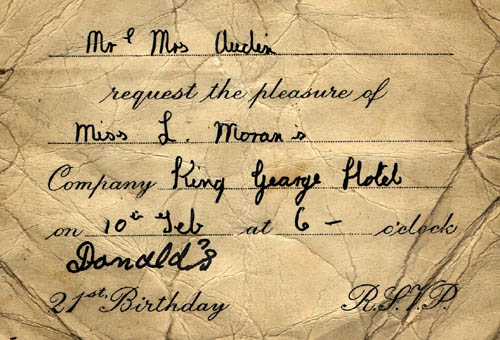 Mr & Mrs Auden
request the pleasure of
Miss L. Moran's
Company King George Hotel
on 10th Feb at 6 - o'clock
Donald's
21st. Birthday R.S.V.P.